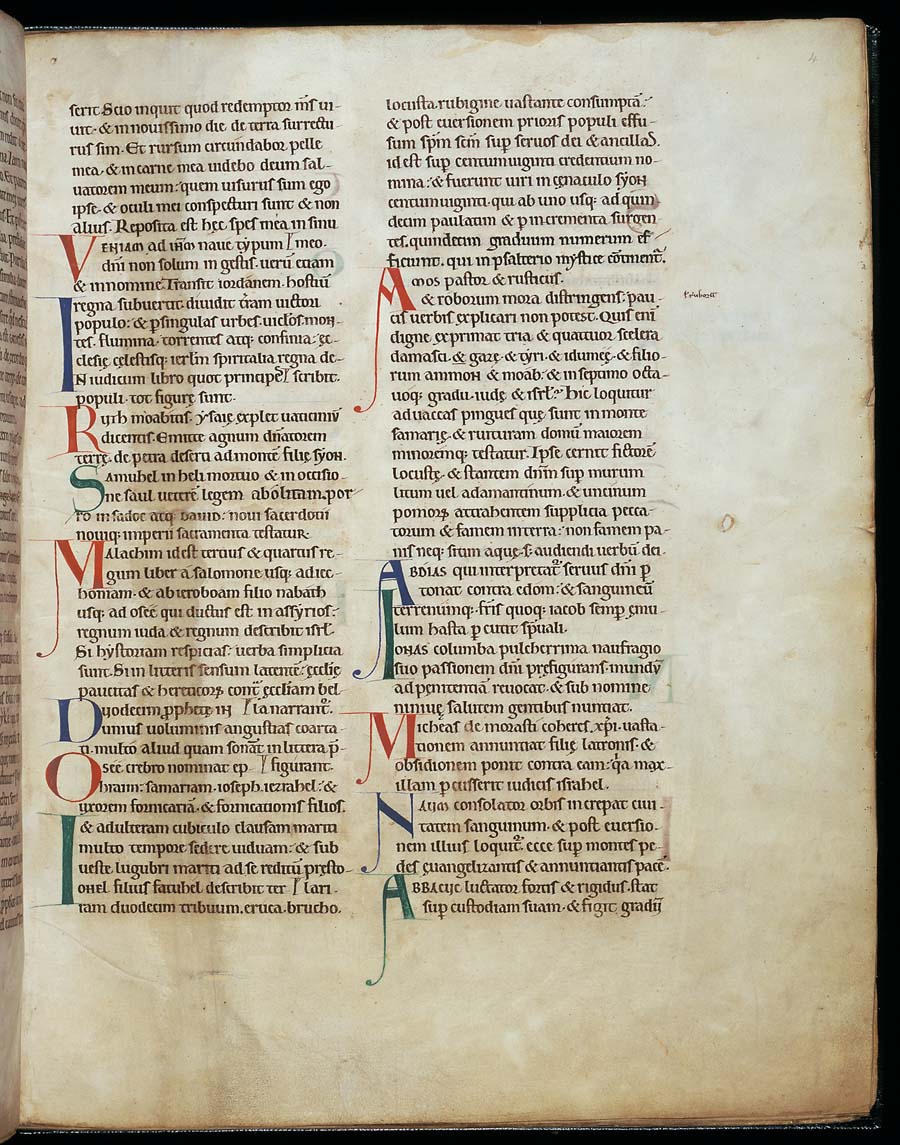 serit. Scio inquit quod redemptor m̅s ui-
uit. & in nouissimo die de terra surrectu-
rus sim. Et rursum circundabor pelle
mea. & in carne mea uidebo deum sal-
uatorem meum: quem uisurus sum ego
ipse. & oculi mei conspecturi sunt & non
alius. Reposita est hęc spes mea in sinu
VENIAM ad ih̅m naue typum ⌈ meo.
dn̅i non solum in gestis. ueru̅ etiam
& in nomine. Transit iordanem. hostiu̅
Iregna subuertit. diuidit t̅ram uictori
populo: & p singulas urbes. uiclos. mon-
tes. flumina. torrentes atq; confinia: ęc-
clesię cęlestisq; ierl̅m spiritalia regna de-
IN iudicum libro quot principeſ ⌈ scribit.
populi. tot figurę sunt.
Ruth moabitis. ysaię explet uaticiniu̅
dicentis. Emitte agnum dn̅atorem
terrę. de petra deserti ad monte̅ filię syon.
Samuhel in heli mortuo & in occisio-
ne saul uetere̅ legem abolitam. por
ro in sadoc atq; dauid: noui sacerdotii
nouiq; imperii sacramenta testatur.
Malachim id est tertius & quartus re-
gum liber a salomone usq; ad iec-
honiam. & ab ieroboam filio nabath
usq; ad oseę qui ductus est in assyrios:
regnum iuda & regnum describit isrl̅.
Si hystoriam respicias: uerba simplicia
sunt. Si in litteris sensum latente̅: ęcclię
paucitas & hereticoꝝ cont̅ ęccliam bel-
Duodecim p̱phetę in ⌈ la narrant̅.
unius uoluminis angustias coarta-
ti. multo aliud quam sonant in littera p̅-
Oseę crebro nominat ep- ⌈ figurant.
hraim: samariam. ioseph. iezrahel: &
uxorem fornicaria̅. & fornicationis filios.
& adulteram cubiculo clausam mariti
multo tempore sedere uiduam: & sub
ueste lugubri mariti ad se reditu̅ pręsto-
Iohel filius fatuhel describit ter ⌈ lari.
ram duodecim tribuum. eruca. brucho.
locusta. rubigine uastante consumpta̅:
& post euersionem prioris populi effu-
sum sp̅m sc̅m sup seruos dei & ancillaS.
id est sup centumuiginti credentium no-
mina: & fuerunt uiri in cęnaculo syon
centumuiginti. qui ab uno usq; ad quin
decim paulatim & p incrementa surgen-
tes. quindecim graduum numerum ef-
ficiunt. qui in psalterio mystice co̅tinent̅.
Amos pastor & rusticus.
& roborum mora distringens: pau-
cis uerbis explicari non potest. Quis eni̅
digne exprimat tria & quattuor scelera
damasci. & gazę. & tyri. & idumeę. & filio-
rum ammon & moab: & in septimo octa-
uoq; gradu. iudę & isrl̅? Hic loquitur
ad uaccas pingues quę sunt in monte
samarię. & ruituram domu̅ maiorem
minoremq; testatur. Ipse cernit fictore̅
locustę. & stantem dn̅m sup murum
litum uel adamantinum. & uncinum
pomoꝝ attrahentem supplicia pecca-
torum & famem in terra: non famem pa-
nis neq; sitim aquę. s; audiendi uerbu̅ dei.
Abdias qui interpretat̅ seruus dn̅i p
tonat contra edom: & sanguineu̅
terrenumq; fr̅is quoq; iacob semp ęmu-
lum hasta p cutit sp̅uali.
Ionas columba pulcherrima naufragio
suo passionem dn̅i pręfigurans. mundu̅
ad penitentia̅ reuocat. & sub nomine
niniuę salutem gentibus nuntiat.
Micheas de morasti coheres xp̅i. uasta-
tionem annuntiat filię latronis. &
obsidionem ponit contra eam: qa max-
illam p cusserit iudicis israhel.
Naum consolator orbis increpat ciui-
tatem sanguinum. & post euersio-
nem illius loquit̅: ecce sup montes pe-
des euangelizantis & annuntiantis pace̅.
Abbacuc luctator fortis & rigidus. stat
sup custodiam suam. & figit gradu̅